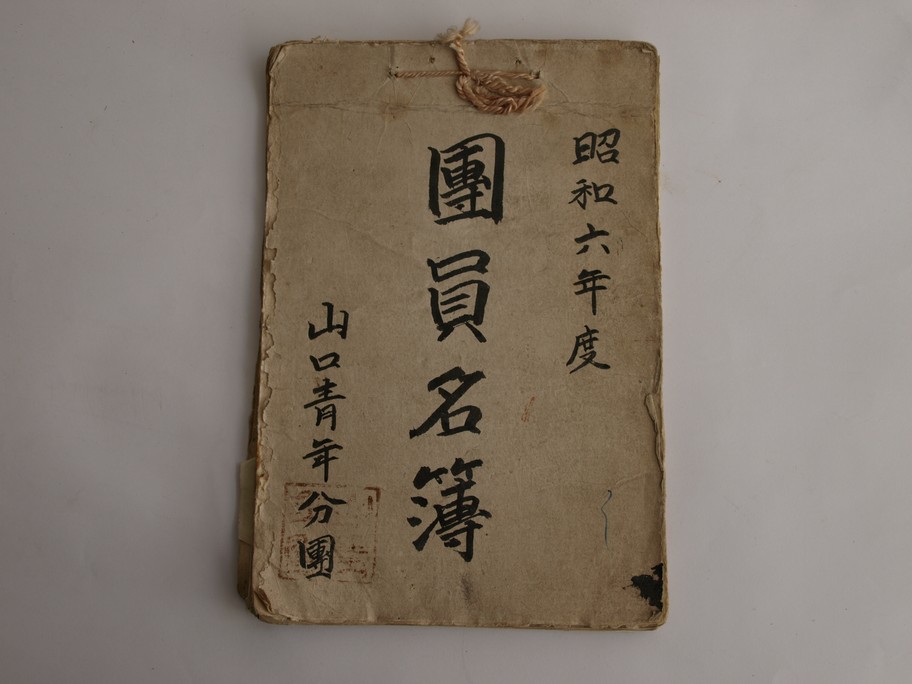 昭和六年度
團員名簿
山口青年分團